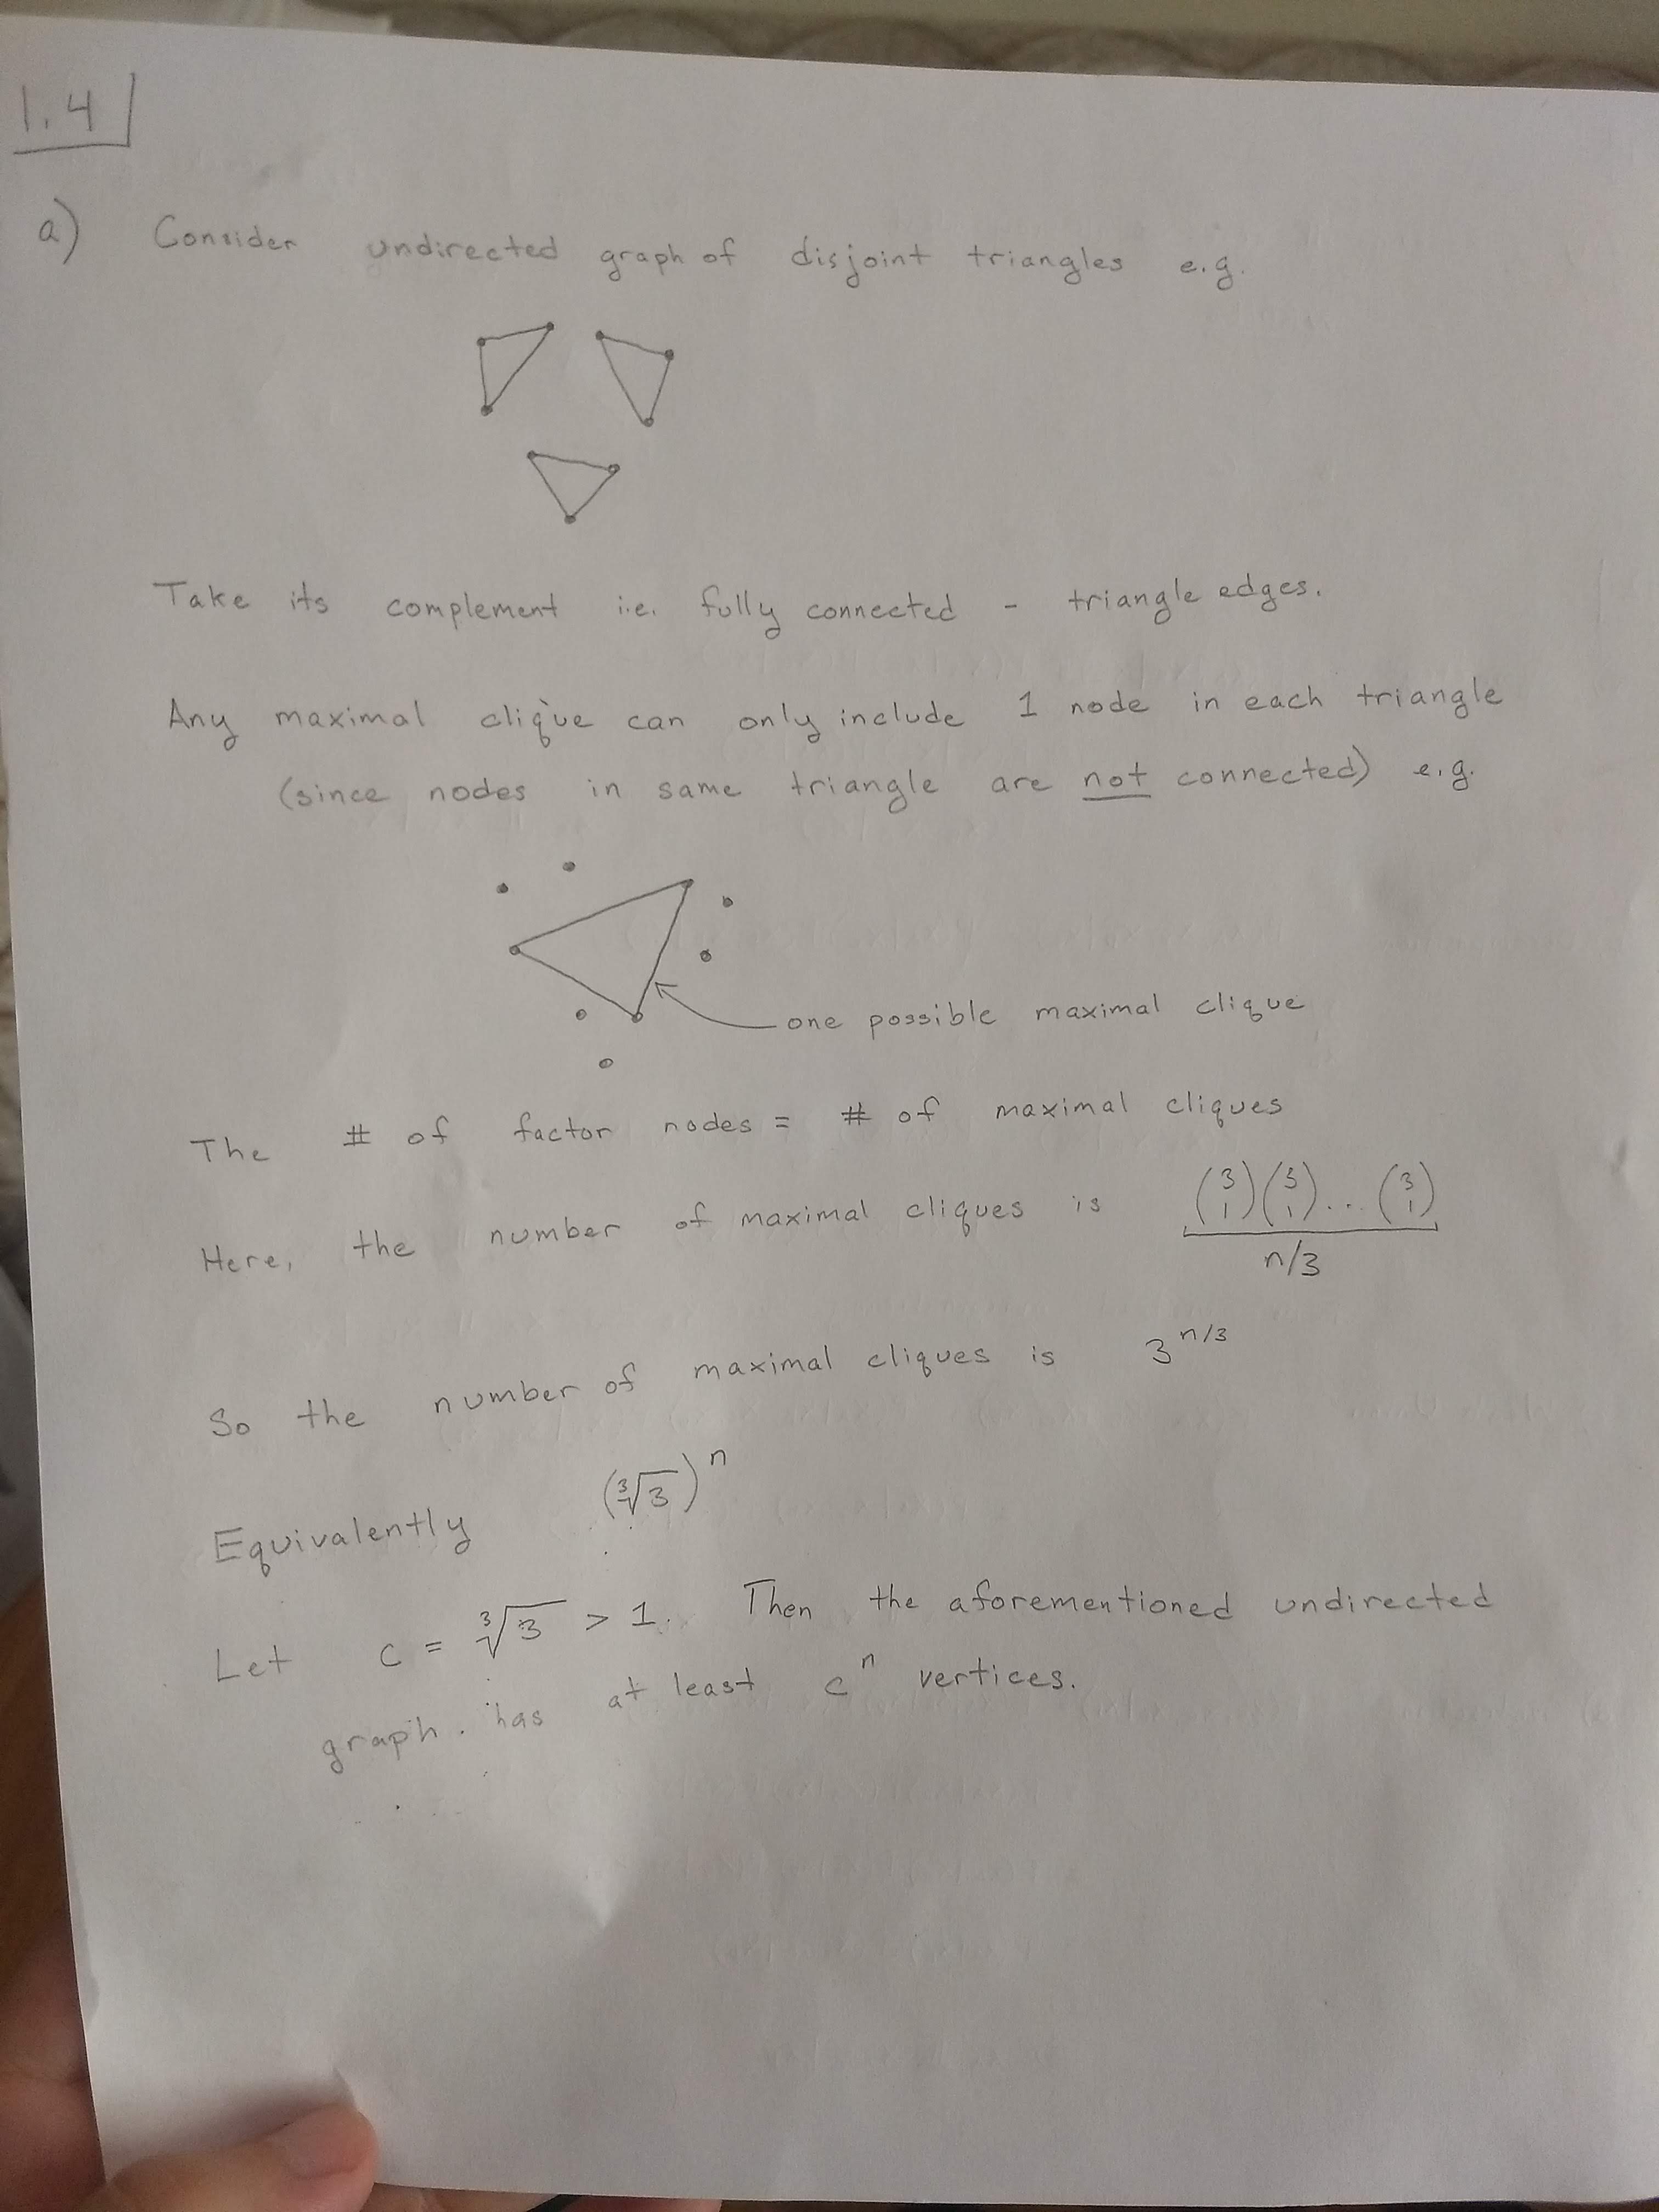 1.4
a) Consider undirected graph of disjoint triangles e.g.
Take its complement i.e. fully connected - triangle edges.
Any maximal clique can only include 1 node in each triangle
(since nodes in same triangle are not connected) e.g.
one possible maximal clique
The # of factor nodes = # of maximal cliques
Here, the number of maximal cliques is (3 1)(3 1)...(3 1)
n/3
So the number of maximal cliques is 3^n/3
Equivalently (∛3)^n
Let c = ∛3 > 1. Then the aforementioned undirected
graph has at least c^n vertices.